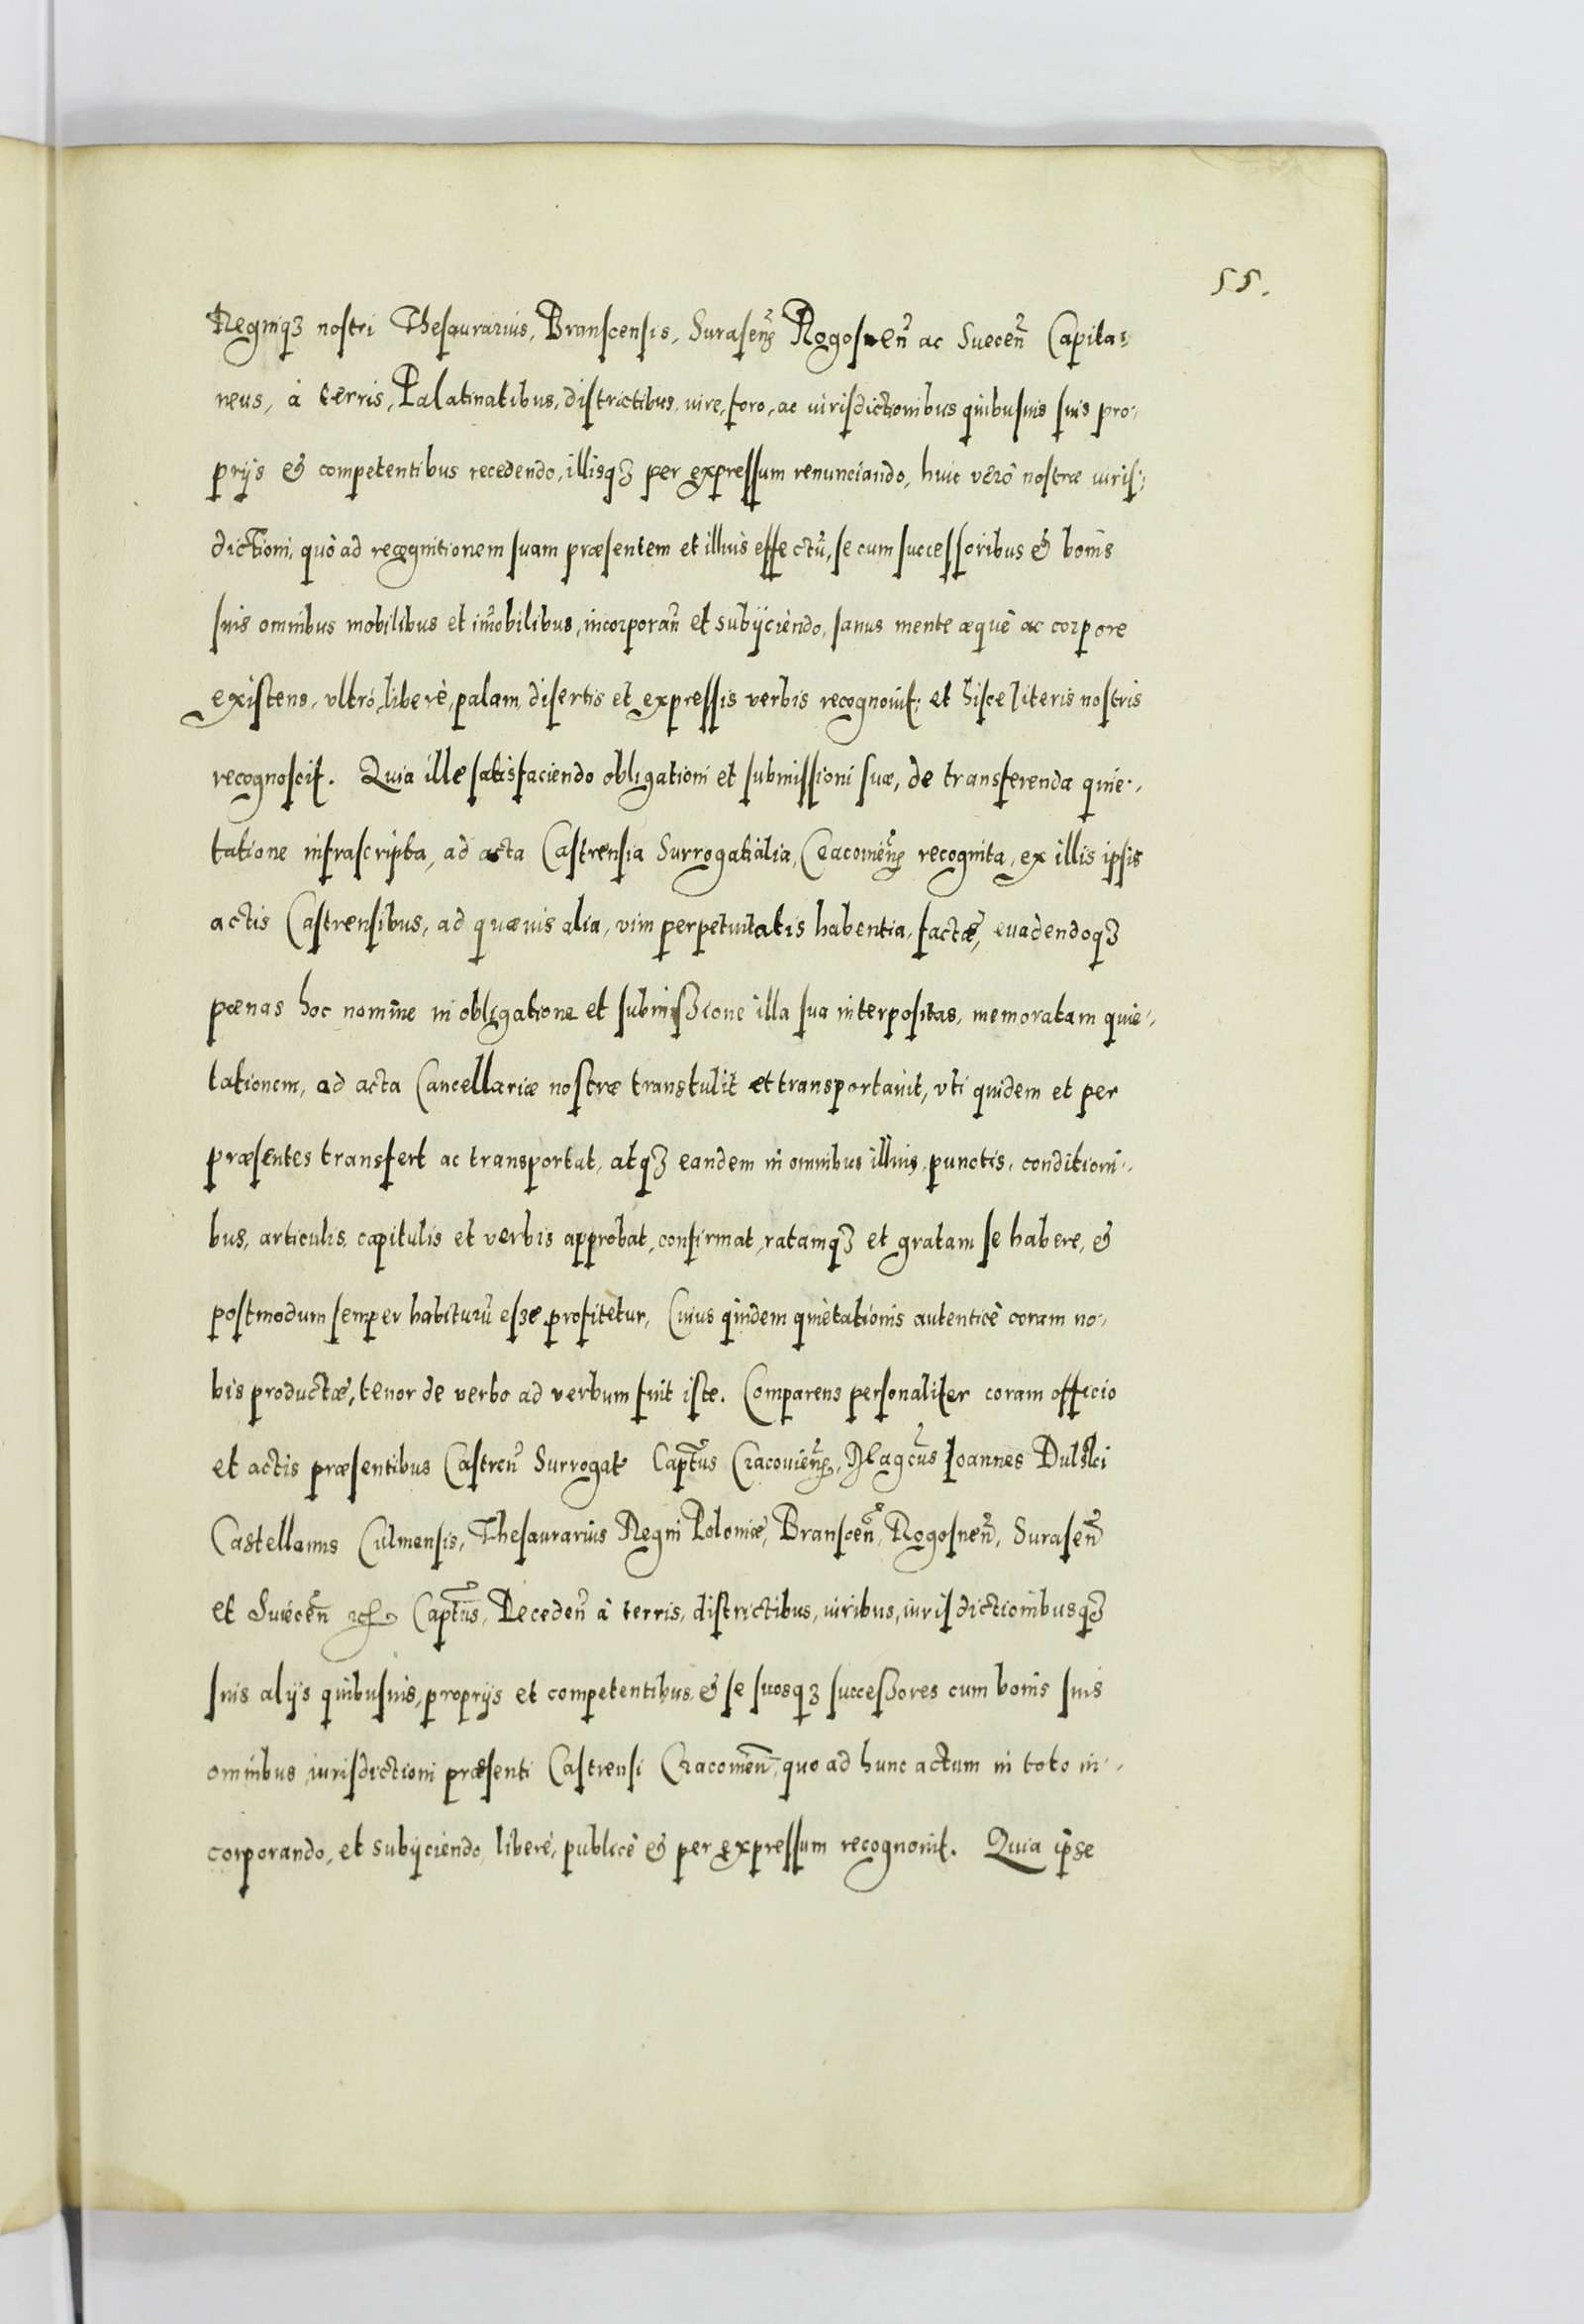 55.
Regniq3 nostri Thesaurarius, Branscensis, Surasen̄ Rogosnen̄ ac Suecen̄ Capita:
neus, à terris, Palatinatibus, districtibus, iure, foro, ac iurisdictionibus quibusuis suis pro-
prijs & competentibus recedendo, illisq3 per expressum renunciando, huic verò nostræ iuris:
dictioni, quò ad recognitionem suam præsentem et illius effectū, se cum successoribus & bonis
suis omnibus mobilibus et im̄obilibus, incorporan̄ et subijciendo, sanus mente æquè ac corpore
existens, vltrò, liberè, palam, disertis et expressis verbis recognouit; et hisce literis nostris
recognoscit. Quia ille satisfaciendo obligationi et submissioni suæ, de transferenda quie-
tatione infrascripta, ad acta Castrensia Surrogatialia, Cracouien̄ recognita, ex illis ipsis
actis Castrensibus, ad quæuis alia, vim perpetuitatis habentia, factæ, euadendoq3
pœnas hoc nomine in obligatione et submissione illa sua interpositas, memoratam quie-
tationem, ad acta Cancellariæ nostræ transtulit et transportauit, vti quidem et per
præsentes transfert ac transportat, atq3 eandem in omnibus illius, punctis, conditioni-
bus, articulis, capitulis et verbis approbat, confirmat, ratamq3 et gratam se habere, &
postmodum semper habiturū esse profitetur, Cuius quidem quietationis autenticè coram no-
bis productæ, tenor de verbo ad verbum fuit iste. Comparens personaliter coram officio
et actis præsentibus Castren̄ Surrogat Captūs Cracouien̄, Magcūs Ioannes Dulski
Castellanus Culmensis, Thesaurarius Regni Poloniæ, Branscen̄, Rogosnen̄, Surasen̄
et Suiecen̄ Captūs, Receden̄ à terris, districtibus, iuribus, iurisdictionibusq3
suis alijs quibusuis, proprijs et competentibus, & se suosq3 successores cum bonis suis
omnibus iurisdictioni præsenti Castrensi Cracouien̄, quo ad hunc actum in toto in-
corporando, et subijciendo, liberè, publicè & per expressum recognouit. Quia ipse